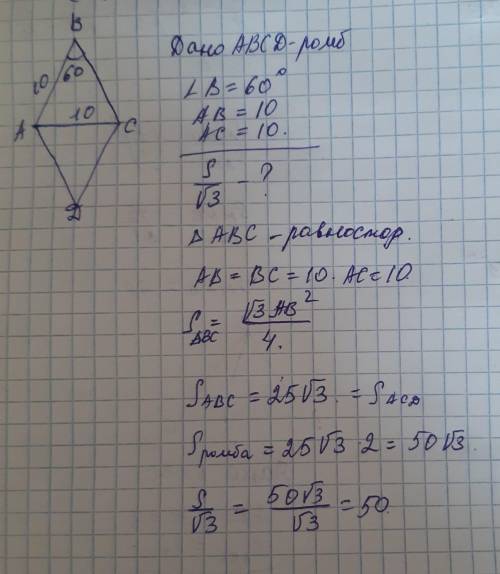 B
60
10
A 10 C
D
Дано ABCD-ромб
∠B = 60°
AB = 10
AC = 10.
S/√3 - ?
ΔABC - равностор.
AB = BC = 10. AC = 10
S ΔABC = √3 AB²/4.
S ABC = 25√3. = S ACD
S ромба = 25√3 · 2 = 50√3.
S/√3 = 50√3/√3 = 50.